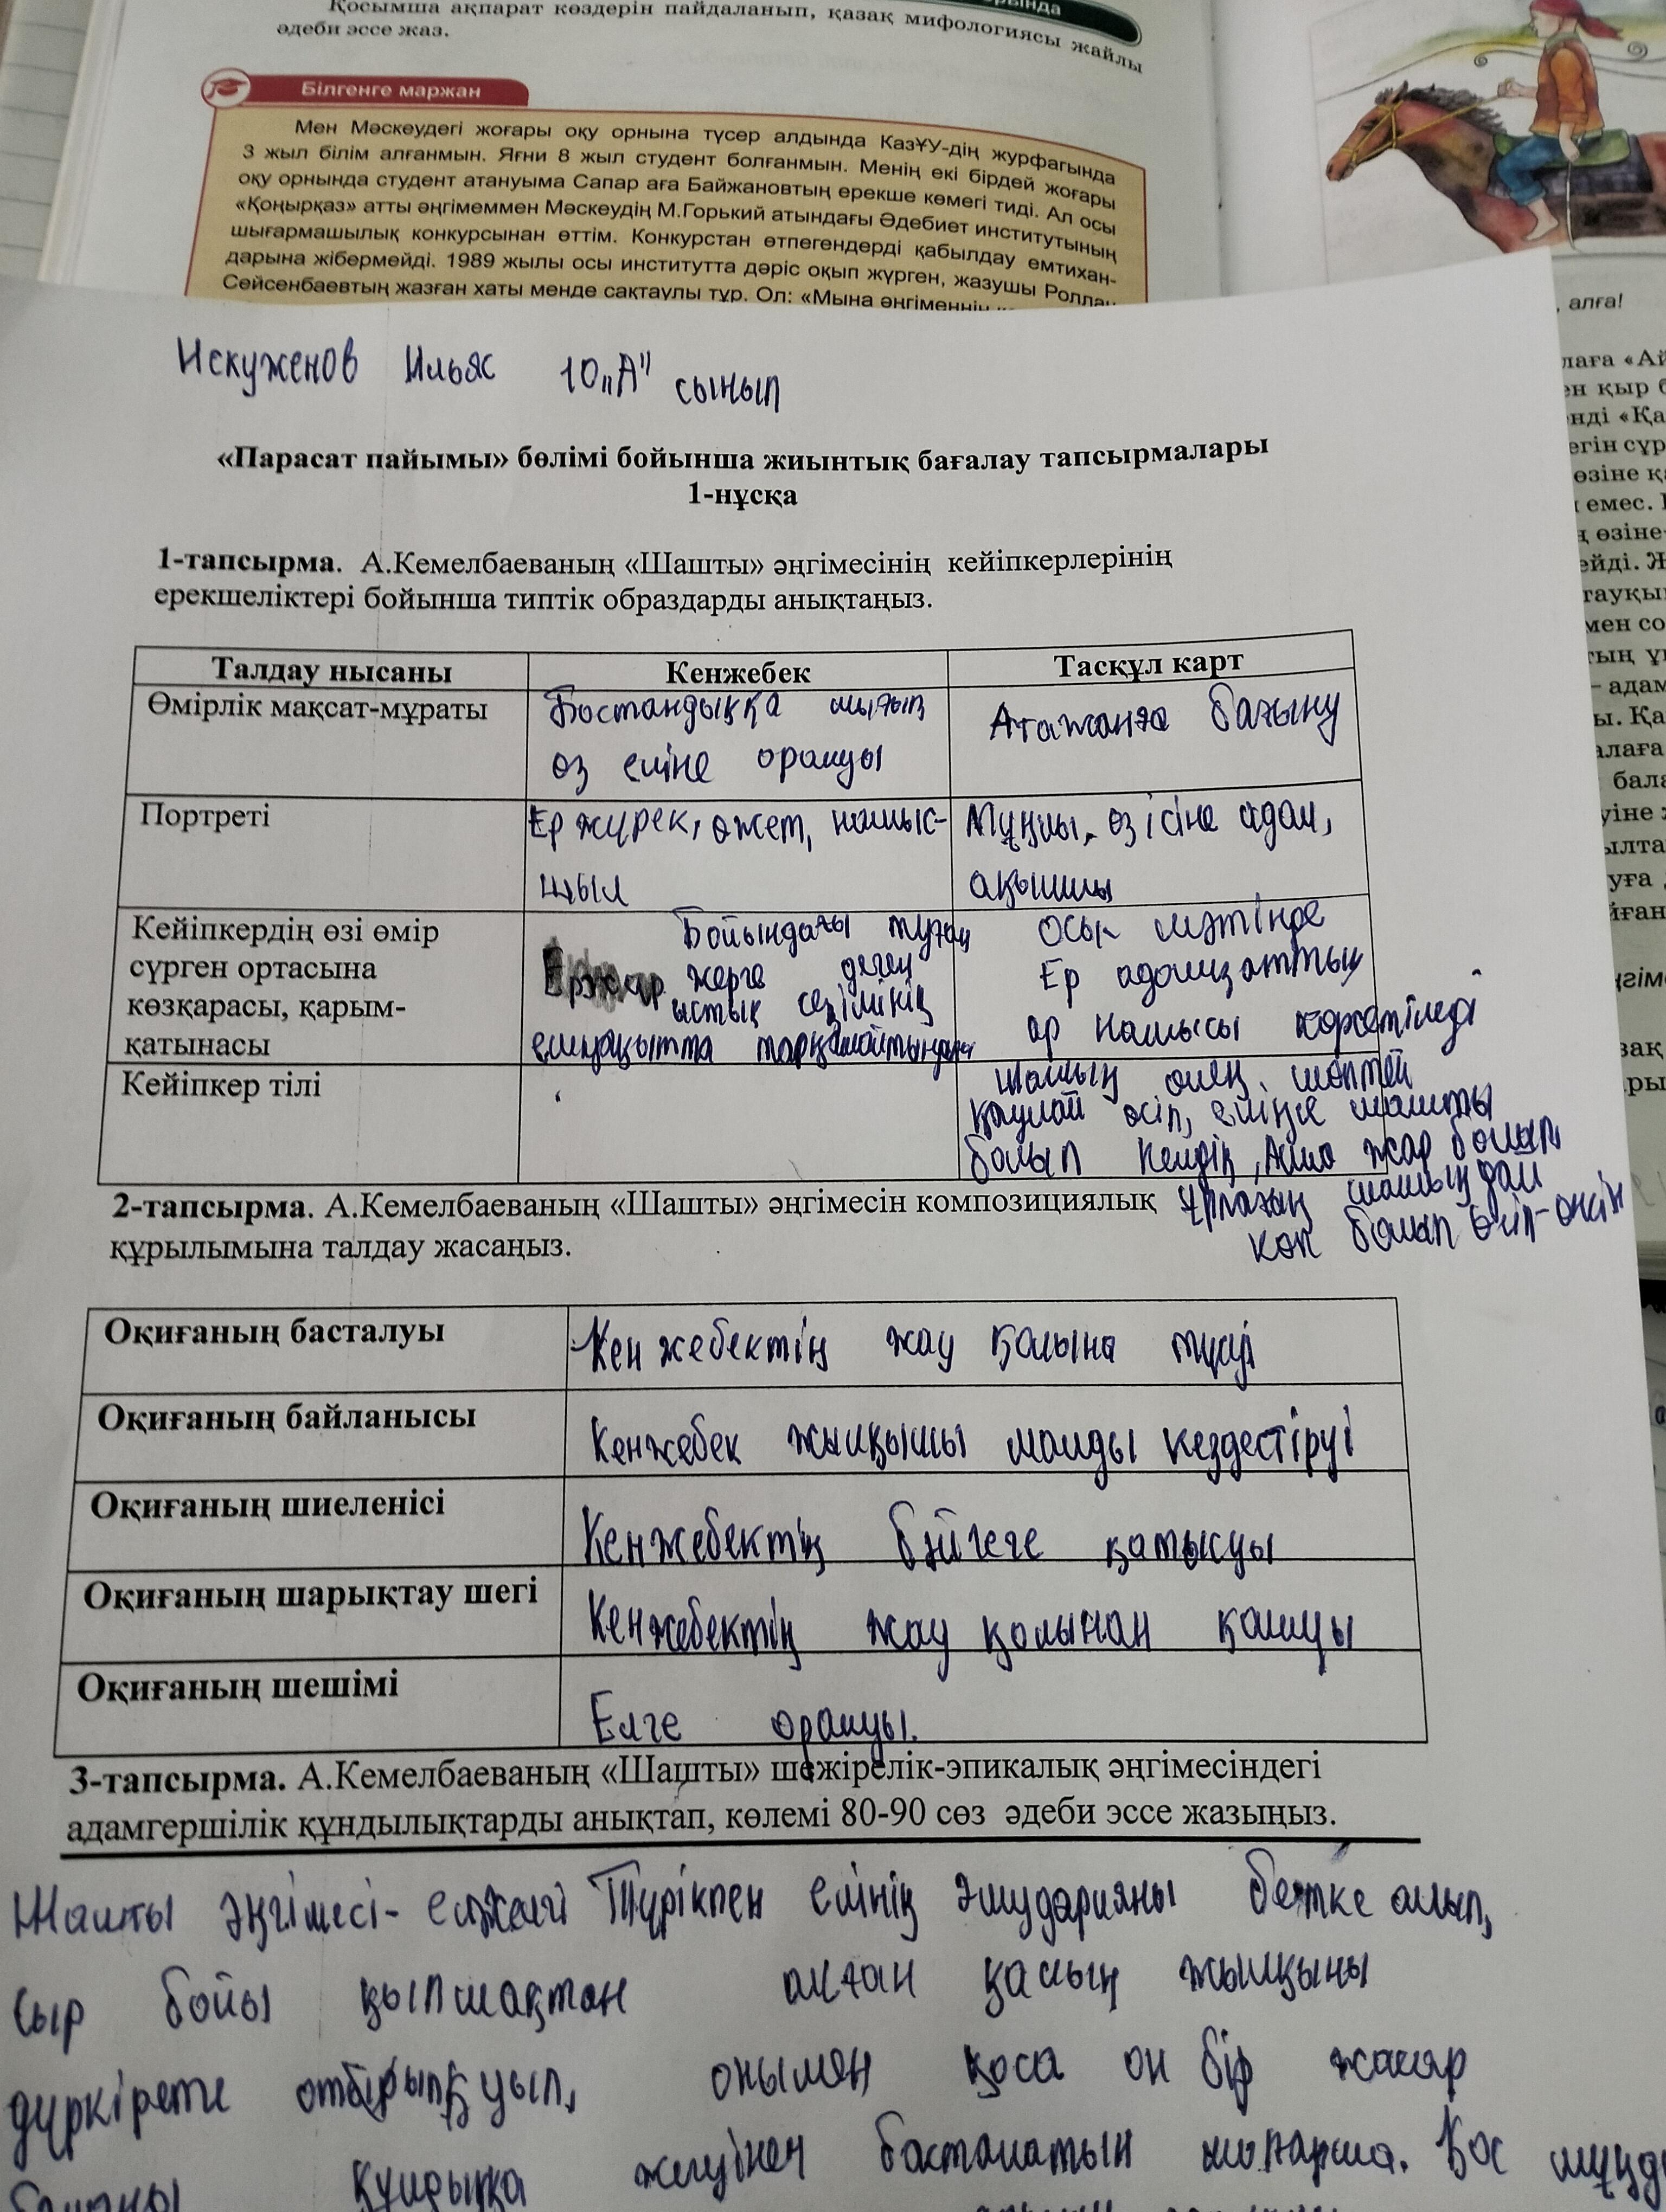 рында
Қосымша ақпарат көздерін пайдаланып, қазақ мифологиясы жайлы
әдеби эссе жаз.
Білгенге маржан
Мен Мәскеудегі жоғары оқу орнына түсер алдында ҚазҰУ-дің журфагында
3 жыл білім алғанмын. Яғни 8 жыл студент болғанмын. Менің екі бірдей жоғары
оқу орнында студент атануыма Сапар аға Байжановтың ерекше көмегі тиді. Ал осы
«Қоңырқаз» атты әңгімеммен Мәскеудің М.Горький атындағы Әдебиет институтының
шығармашылық конкурсынан өттім. Конкурстан өтпегендерді қабылдау емтихан-
дарына жібермейді. 1989 жылы осы институтта дәріс оқып жүрген, жазушы Роллан
Сейсенбаевтың жазған хаты менде сақтаулы тұр. Ол: «Мына әңгіменнің
, алға!
Искуженов Ильяс 10 „А" сынып
«Парасат пайымы» бөлімі бойынша жиынтық бағалау тапсырмалары
1-нұсқа
1-тапсырма. А.Кемелбаеваның «Шашты» әңгімесінің кейіпкерлерінің
ерекшеліктері бойынша типтік образдарды анықтаңыз.
Талдау нысаны Кенжебек Тасқұл карт
Өмірлік мақсат-мұраты
Бостандыққа шығып
өз еліне оралуы
Атажанға бағыну
Портреті
Ержүрек, өжет, намыс-
шыл
Мұңлы, өз ісіне адал,
ақылшы
Кейіпкердің өзі өмір
сүрген ортасына
көзқарасы, қарым-
қатынасы
Бойындағы туған
жерге деген
ыстық сезімінің
ешқашытта тарқамайтындығы
Осы мәтінде
Ер адамзаттың
ар намысы көрсетіледі
Кейіпкер тілі
шашың өлең, шөптей
қаулай өсіп, еліңе шашты
болып келдің, Аима жар болып,
Ұрпағың шашыңдай
көп болып өсіп-өнсін
2-тапсырма. А.Кемелбаеваның «Шашты» әңгімесін композициялық
құрылымына талдау жасаңыз.
Оқиғаның басталуы Кенжебектің жау қолына түсуі
Оқиғаның байланысы Кенжебек жылқышы шалды кездестіруі
Оқиғаның шиеленісі Кенжебектің бәйгеге қатысуы
Оқиғаның шарықтау шегі Кенжебектің жау қолынан қашуы
Оқиғаның шешімі Елге оралуы.
3-тапсырма. А.Кемелбаеваның «Шашты» шежірелік-эпикалық әңгімесіндегі
адамгершілік құндылықтарды анықтап, көлемі 80-90 сөз әдеби эссе жазыңыз.
Шашты әңгімесі- ежелгі Түрікпен елінің Әмударияны бетке алып,
Сыр бойы қыпшақтан алған қалың жылқыны
дүркірете отбырып қуып, онымен қоса он бір жасар
баланы құлдыққа жегуінен басталатын шығарма. Қос